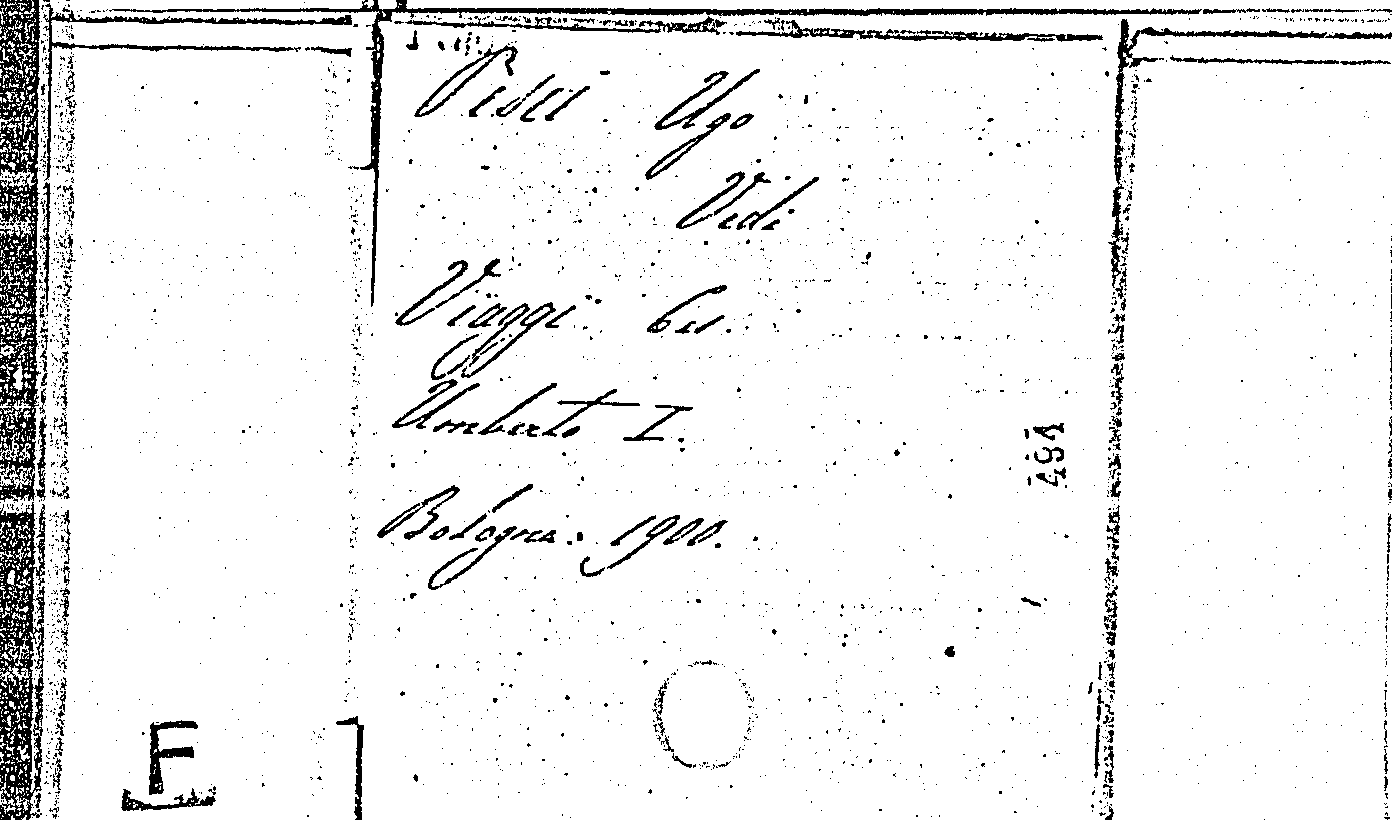 Pesci Ugo
Vedi
Viaggi
Umberto I.
Bologna. 1900.
484
F